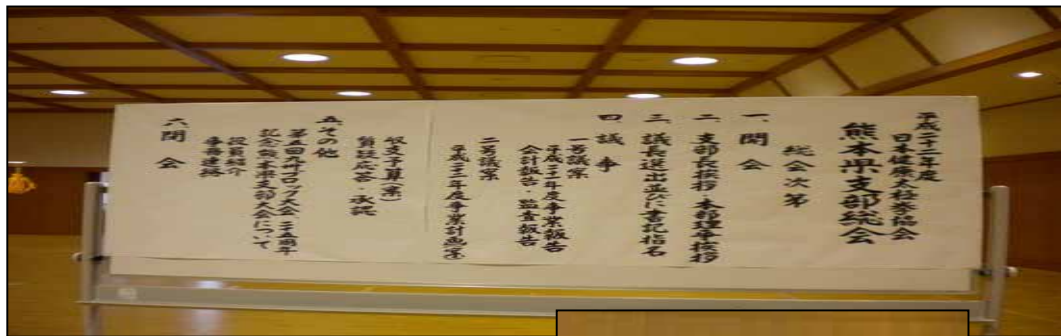 平成二十一年度
日本健康太極拳協会
熊本県支部総会
総会次第
一、開会
二、支部長挨拶・本部理事挨拶
三、議長選出並びに書記指名
四 議事
一号議案
平成二十年度事業報告
会計報告・監査報告
二号議案
平成二十一年度事業計画(案)
収支予算(案)
質疑応答・承認
五、その他
記念熊本県支部大会について
役員紹介
事務連絡
六 閉会